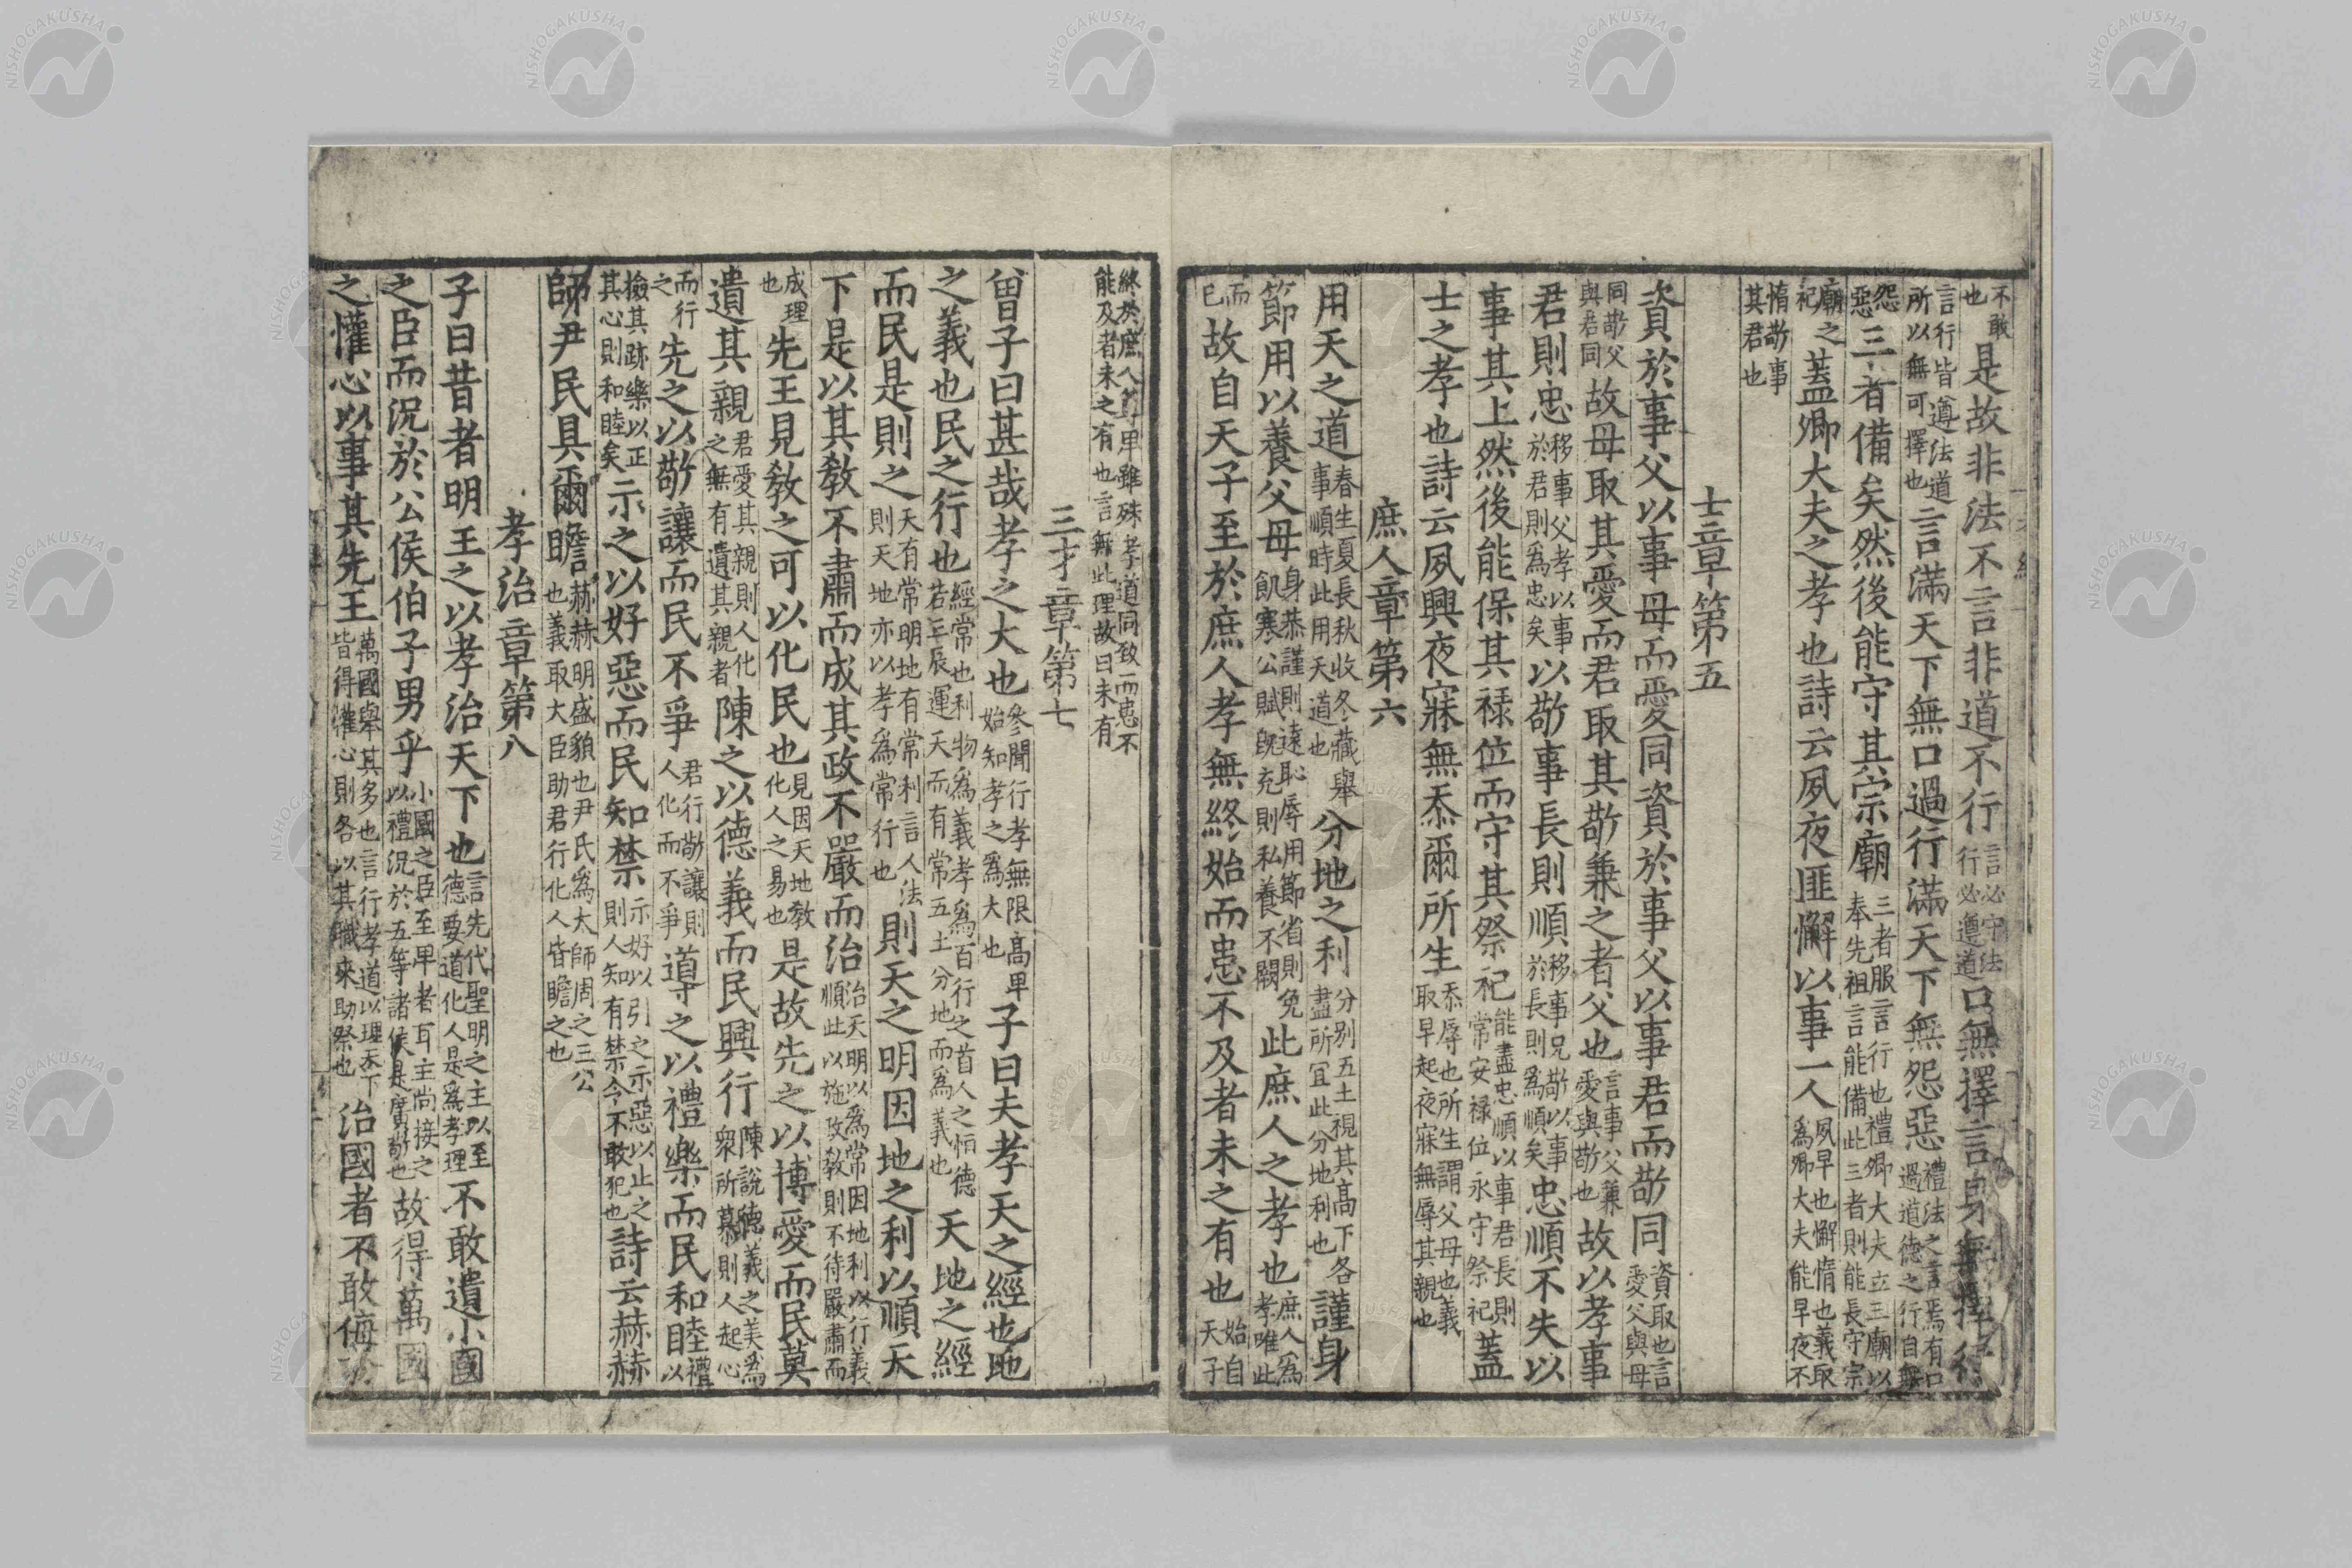 不敢也是故非法不言非道不行言必守法行必遵道口無擇言身無擇行
言行皆遵法道所以無可擇也言滿天下無口過行滿天下無怨惡禮法之言焉有口過道德之行自無
怨惡三者備矣然後能守其宗廟三者服言行也禮卿大夫立三廟以奉先祖言能備此三者則能長守宗
廟之祀蓋卿大夫之孝也詩云夙夜匪懈以事一人夙早也懈惰也義取爲卿大夫能早夜不
惰敬事其君也
士章第五
資於事父以事母而愛同資於事父以事君而敬同資取也言愛父與母
同敬父與君同故母取其愛而君取其敬兼之者父也言事父兼愛與敬也故以孝事
君則忠移事父孝以事於君則爲忠矣以敬事長則順移事兄敬以事於長則爲順矣忠順不失以
事其上然後能保其祿位而守其祭祀能盡忠順以事君長則常安祿位永守祭祀蓋
士之孝也詩云夙興夜寐無忝爾所生忝辱也所生謂父母也義取早起夜寐無辱其親也
庶人章第六
用天之道春生夏長秋收冬藏舉事順時此用天道也分地之利分別五土視其高下各盡所宜此分地利也謹身
節用以養父母身恭謹則遠恥辱用節省則免飢寒公賦既充則私養不闕此庶人之孝也庶人爲孝唯此
而已故自天子至於庶人孝無終始而患不及者未之有也始自天子
終於庶人尊卑雖殊孝道同致而患不能及者未之有也言無此理故曰未有
三才章第七
曾子曰甚哉孝之大也參聞行孝無限高卑始知孝之爲大也子曰夫孝天之經也地
之義也民之行也經常也利物爲義孝爲百行之首人之恒德若三辰運天而有常五土分地而爲義也天地之經
而民是則之天有常明地有常利言人法則天地亦以孝爲常行也則天之明因地之利以順天
下是以其敎不肅而成其政不嚴而治治天明以爲常因地利以行義順此以施政敎則不待嚴肅而
成理也先王見敎之可以化民也見因天地敎化人之易也是故先之以博愛而民莫
遺其親君愛其親則人化之無有遺其親者陳之以德義而民興行陳說德義之美爲衆所慕則人起心
而行之先之以敬讓而民不爭君行敬讓則人化而不爭導之以禮樂而民和睦禮以
撿其跡樂以正其心則和睦矣示之以好惡而民知禁示好以引之示惡以止之則人知有禁令不敢犯也詩云赫赫
師尹民具爾瞻赫赫明盛貌也尹氏爲大師周之三公也義取大臣助君行化人皆瞻之也
孝治章第八
子曰昔者明王之以孝治天下也言先代聖明之主以至德要道化人是爲孝理不敢遺小國
之臣而況於公侯伯子男乎小國之臣至卑者耳主尚接之以禮況於五等諸侯是廣敬也故得萬國
之懽心以事其先王萬國舉其多也言行孝道以理天下皆得懽心則各以其職來助祭也治國者不敢侮於